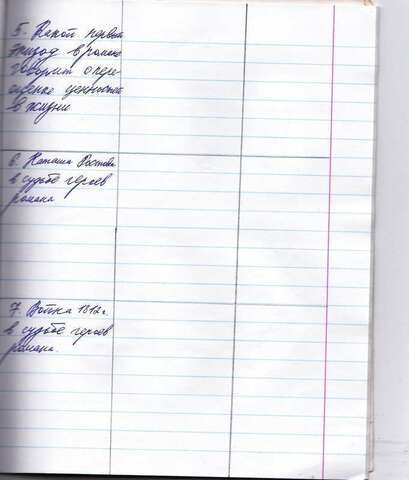 5. Какой первый
эпизод в романе
говорит о пере-
оценке ценностей
в жизни
6. Наташа Ростова
в судьбе героев
романа
7. Война 1812 г.
в судьбе героев
романа.